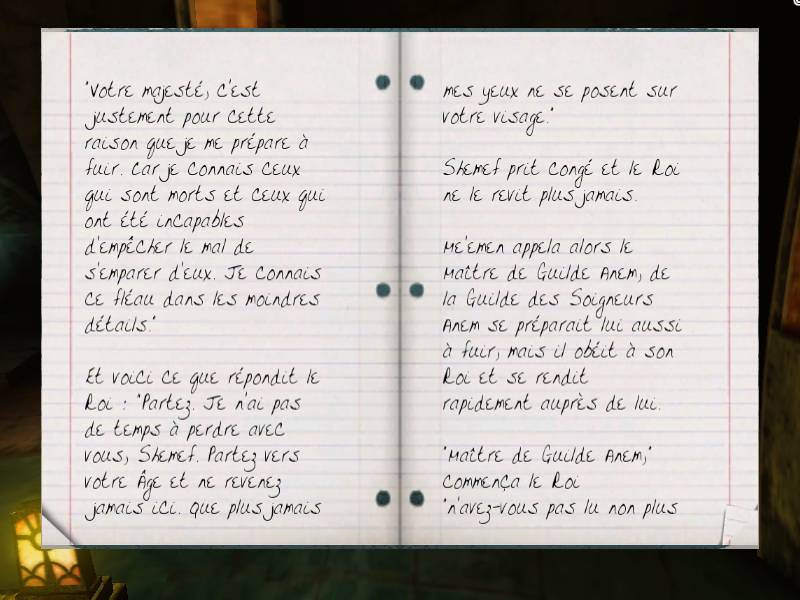 "Votre majesté, c'est
justement pour cette
raison que je me prépare à
fuir. Car je connais ceux
qui sont morts et ceux qui
ont été incapables
d'empêcher le mal de
s'emparer d'eux. Je connais
ce fléau dans les moindres
détails."
Et voici ce que répondit le
Roi : "Partez. Je n'ai pas
de temps à perdre avec
vous, Skemef. Partez vers
votre Âge et ne revenez
jamais ici. Que plus jamais
mes yeux ne se posent sur
votre visage."
Skemef prit congé et le Roi
ne le revit plus jamais.
Me'emen appela alors le
Maître de Guilde Anem, de
la Guilde des Soigneurs
Anem se préparait lui aussi
à fuir, mais il obéit à son
Roi et se rendit
rapidement auprès de lui.
"Maître de Guilde Anem,"
commença le Roi
"n'avez-vous pas lu non plus